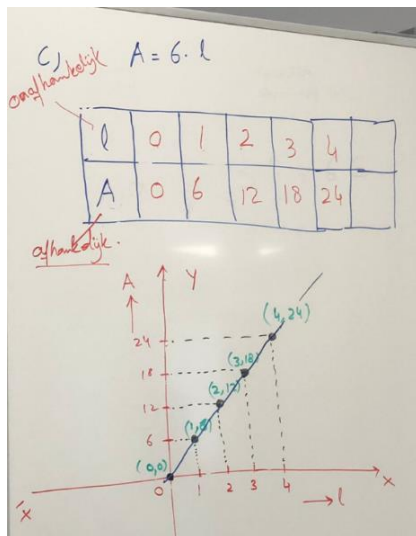 C, A = 6 · l
onafhankelijk
l 0 1 2 3 4
A 0 6 12 18 24
afhankelijk.
A Y
(4,24)
24
(3,18)
18
(2,12)
12
(1,6)
6
(0,0)
0 1 2 3 4 x
-x
l